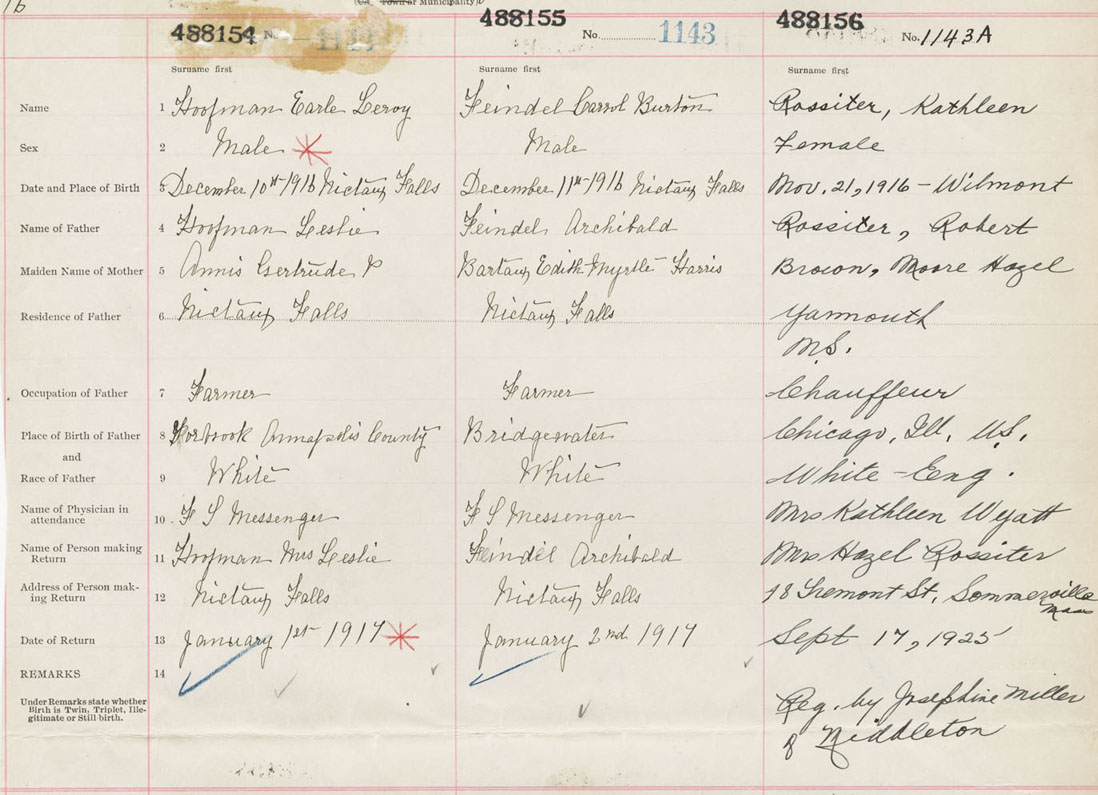 16
Town or Municipality)
488154 No.
488155 No. 1143
488156 No. 1143A
Surname first Surname first Surname first
Name 1 Hoofman Earle Leroy Feindel Carrol Burton Rossiter, Kathleen
Sex 2 Male Male Female
Date and Place of Birth 3 December 10th 1916 Nictaux Falls December 11th 1916 Nictaux Falls Nov. 21, 1916 - Wilmont
Name of Father 4 Hoofman Leslie Feindel Archibald Rossiter, Robert
Maiden Name of Mother 5 Annis Gertrude P Edith Myrtle Harris Brown, Moore Hazel
Residence of Father 6 Nictaux Falls Nictaux Falls Yarmouth
N.S.
Occupation of Father 7 Farmer Farmer Chauffeur
Place of Birth of Father 8 Torbrook Annapolis County Bridgewater Chicago, Ill. U.S.
and
Race of Father 9 White White White - Eng.
Name of Physician in
attendance 10 F S Messenger F S Messenger Mrs Kathleen Wyatt
Name of Person making
Return 11 Hoofman Mrs Leslie Feindel Archibald Mrs Hazel Rossiter
Address of Person mak-
ing Return 12 Nictaux Falls Nictaux Falls 18 Tremont St, Sommerville
Mass
Date of Return 13 January 1st 1917 January 2nd 1917 Sept 17, 1925
REMARKS 14
Under Remarks state whether
Birth is Twin, Triplet, Ille-
gitimate or Still-birth.
Reg. by Josephine Miller
of Middleton